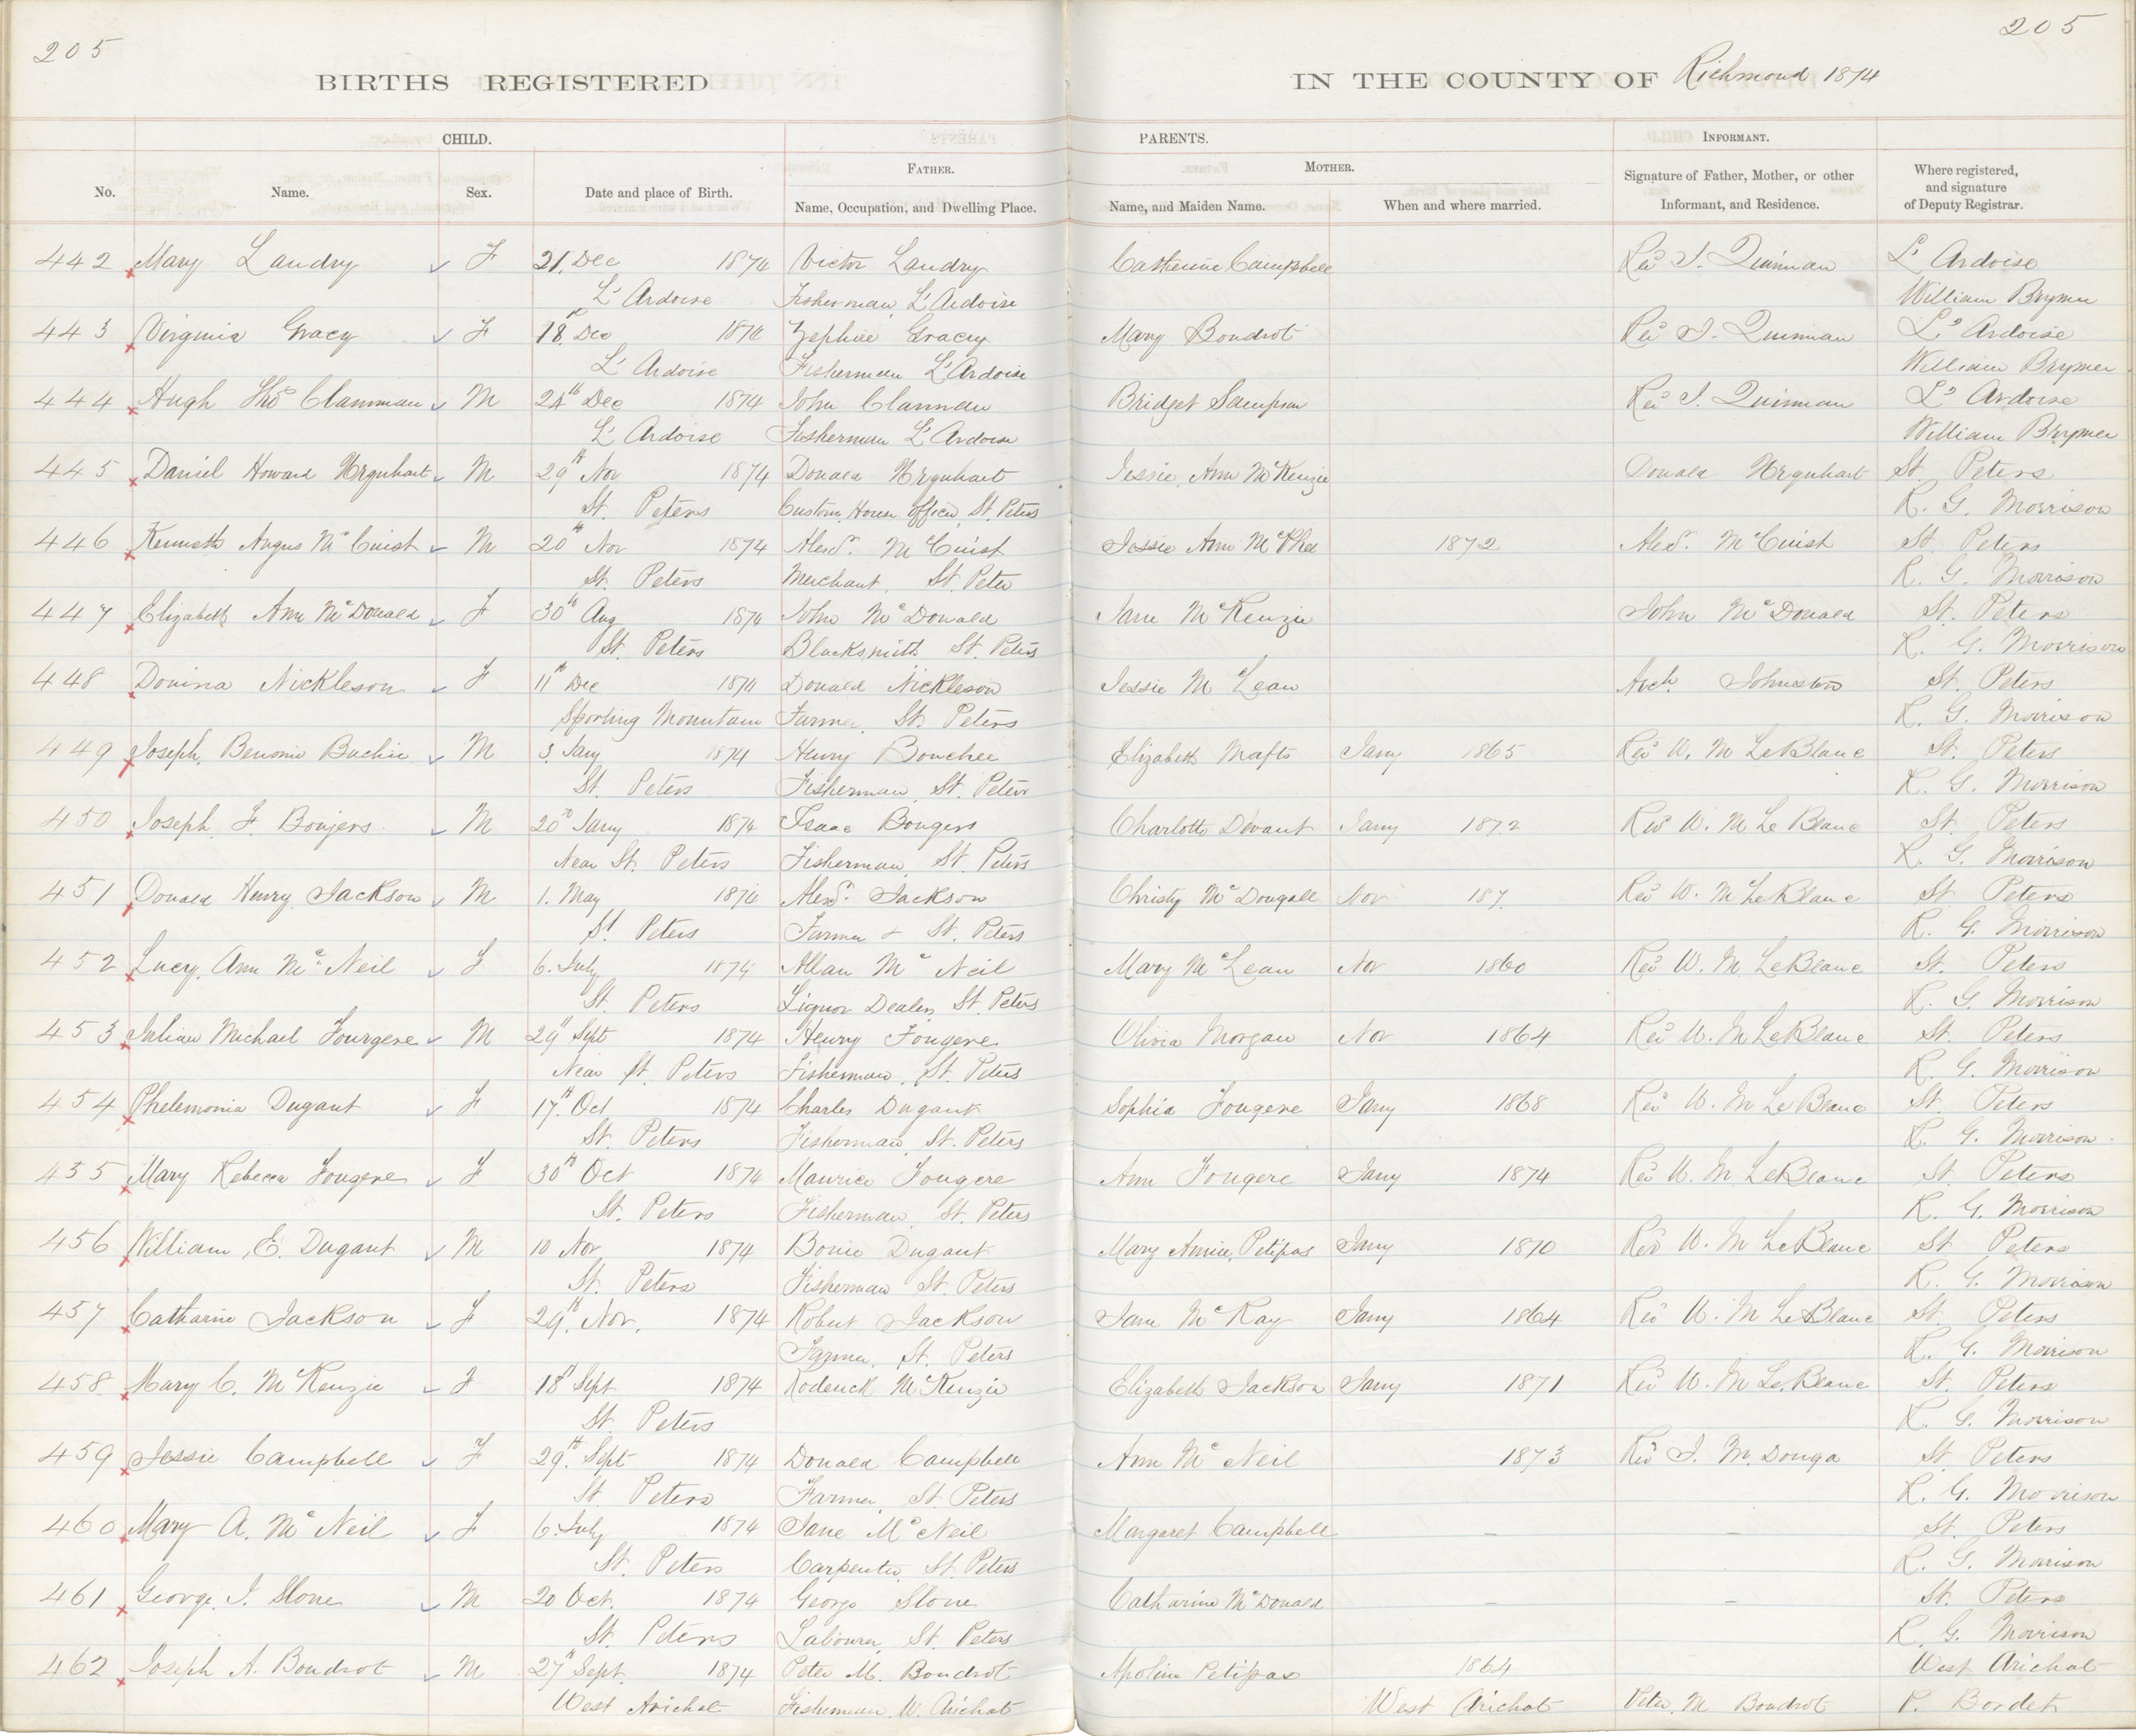 205
205
BIRTHS REGISTERED IN THE COUNTY OF Richmond 1874
CHILD. PARENTS. INFORMANT.
FATHER. MOTHER.
No. Name. Sex. Date and place of Birth. Name, Occupation, and Dwelling Place. Name, and Maiden Name. When and where married. Signature of Father, Mother, or other Informant, and Residence. Where registered, and signature of Deputy Registrar.
442 Mary Landry F 21. Dec 1874 Victor Landry Catherine Campbell Rev J. Quinnan L' Ardoise
L' Ardoise Fisherman, L' Ardoise William Brymer
443 Virginia Gracy F 18. Dec 1874 Zephire Gracy Mary Boudrot Rev J. Quinnan L' Ardoise
L' Ardoise Fisherman L' Ardoise William Brymer
444 Hugh Thos Clannnan M 24th Dec 1874 John Clannan Bridget Sampson Rev J. Quinnan L' Ardoise
L' Ardoise Fisherman L' Ardoise William Brymer
445 Daniel Howard Urquhart M 29th Nov 1874 Donald Urquhart Jessie, Ann McKenzie Donald Urquhart St Peters
St. Peters Custom House officer, St. Peters R. G. Morrison
446 Kenneth Angus McCuist M 20th Nov 1874 Alexr. McCuist Jessie Ann McPhee 1872 Alexr. McCuist St. Peters
St. Peters Merchant, St. Peter R. G. Morrison
447 Elizabeth Ann McDonald F 30th Aug 1874 John McDonald Jane McKenzie John McDonald St. Peters
St. Peters Blacksmith St. Peters R. G. Morrison
448 Donina Nickleson F 11th Dec 1874 Donald Nickleson Jessie McLean Arch. Johnston St. Peters
Sporting Mountain Farmer, St. Peters R. G. Morrison
449 Joseph, Benonie Buchie M 3. Jany 1874 Henry Bouchee Elizabeth Mafts Jany 1865 Rev W. M LeBlanc St. Peters
St. Peters Fisherman, St. Peters R. G. Morrison
450 Joseph F. Boujers M 20th Jany 1874 Isaac Bougers Charlotte Divant Jany 1872 Rev W. M LeBlanc St. Peters
Near St. Peters Fisherman, St. Peters R. G. Morrison
451 Donald Henry Jackson M 1. May 1874 Alexr. Jackson Christy McDougall Nov 187. Rev W. M LeBlanc St. Peters
St. Peters Farmer St. Peters R. G. Morrison
452 Lucy, Ann McNeil F 6. July 1874 Allan McNeil Mary McLean Nov 1860 Rev W. M LeBlanc St. Peters
St. Peters Liquor Dealer, St. Peters R. G. Morrison
453 Julian Michael Fourgere M 29th Sept 1874 Henry Fougere Olivia Morgan Nov 1864 Rev W. M LeBlanc St. Peters
Near St. Peters Fisherman, St. Peters R. G. Morrison
454 Phelemonia Dugant F 17th. Oct 1874 Charles Dugant Sophia Fougere Jany 1868 Rev W. M LeBlanc St. Peters
St. Peters Fisherman, St. Peters R. G. Morrison
455 Mary Rebecca Fougere F 30th Oct 1874 Maurice Fougere Ann Fougere Jany 1874 Rev W. M LeBlanc St. Peters
St. Peters Fisherman, St. Peters R. G. Morrison
456 William, E. Dugant M 10 Nov 1874 Bonie Dugant Mary Annie, Petipas Jany 1870 Rev W. M LeBlanc St Peters
St. Peters Fisherman St. Peters R. G. Morrison
457 Catharine Jackson F 29th. Nov. 1874 Robert Jackson Jane McKay Jany 1864 Rev W. M LeBlanc St. Peters
Farmer, St. Peters R. G. Morrison
458 Mary C. McKenzie F 18th Sept 1874 Roderick McKenzie Elizabeth Jackson Jany 1871 Rev W. M LeBlanc St. Peters
St. Peters R. G. Morrison
459 Jessie Campbell F 29th. Sept 1874 Donald Campbell Ann McNeil 1873 Rev J. M. Donga St. Peters
St. Peters Farmer, St. Peters R. G. Morrison
460 Mary A. McNeil F 6. July 1874 Jane McNeil Margaret Campbell – – St. Peters
St. Peters Carpenter, St. Peters R. G. Morrison
461 George. J. Slone M 20 Oct. 1874 George Slone Catharine McDonald – – St. Peters
St. Peters Labourer, St. Peters R. G. Morrison
462 Joseph A. Boudrot M 27th Sept. 1874 Peter M. Boudrot Apoline Petipas 1864 West Arichat
West Arichat Fisherman, W. Arichat West Arichat Peter, M Boudrot P. Bordet